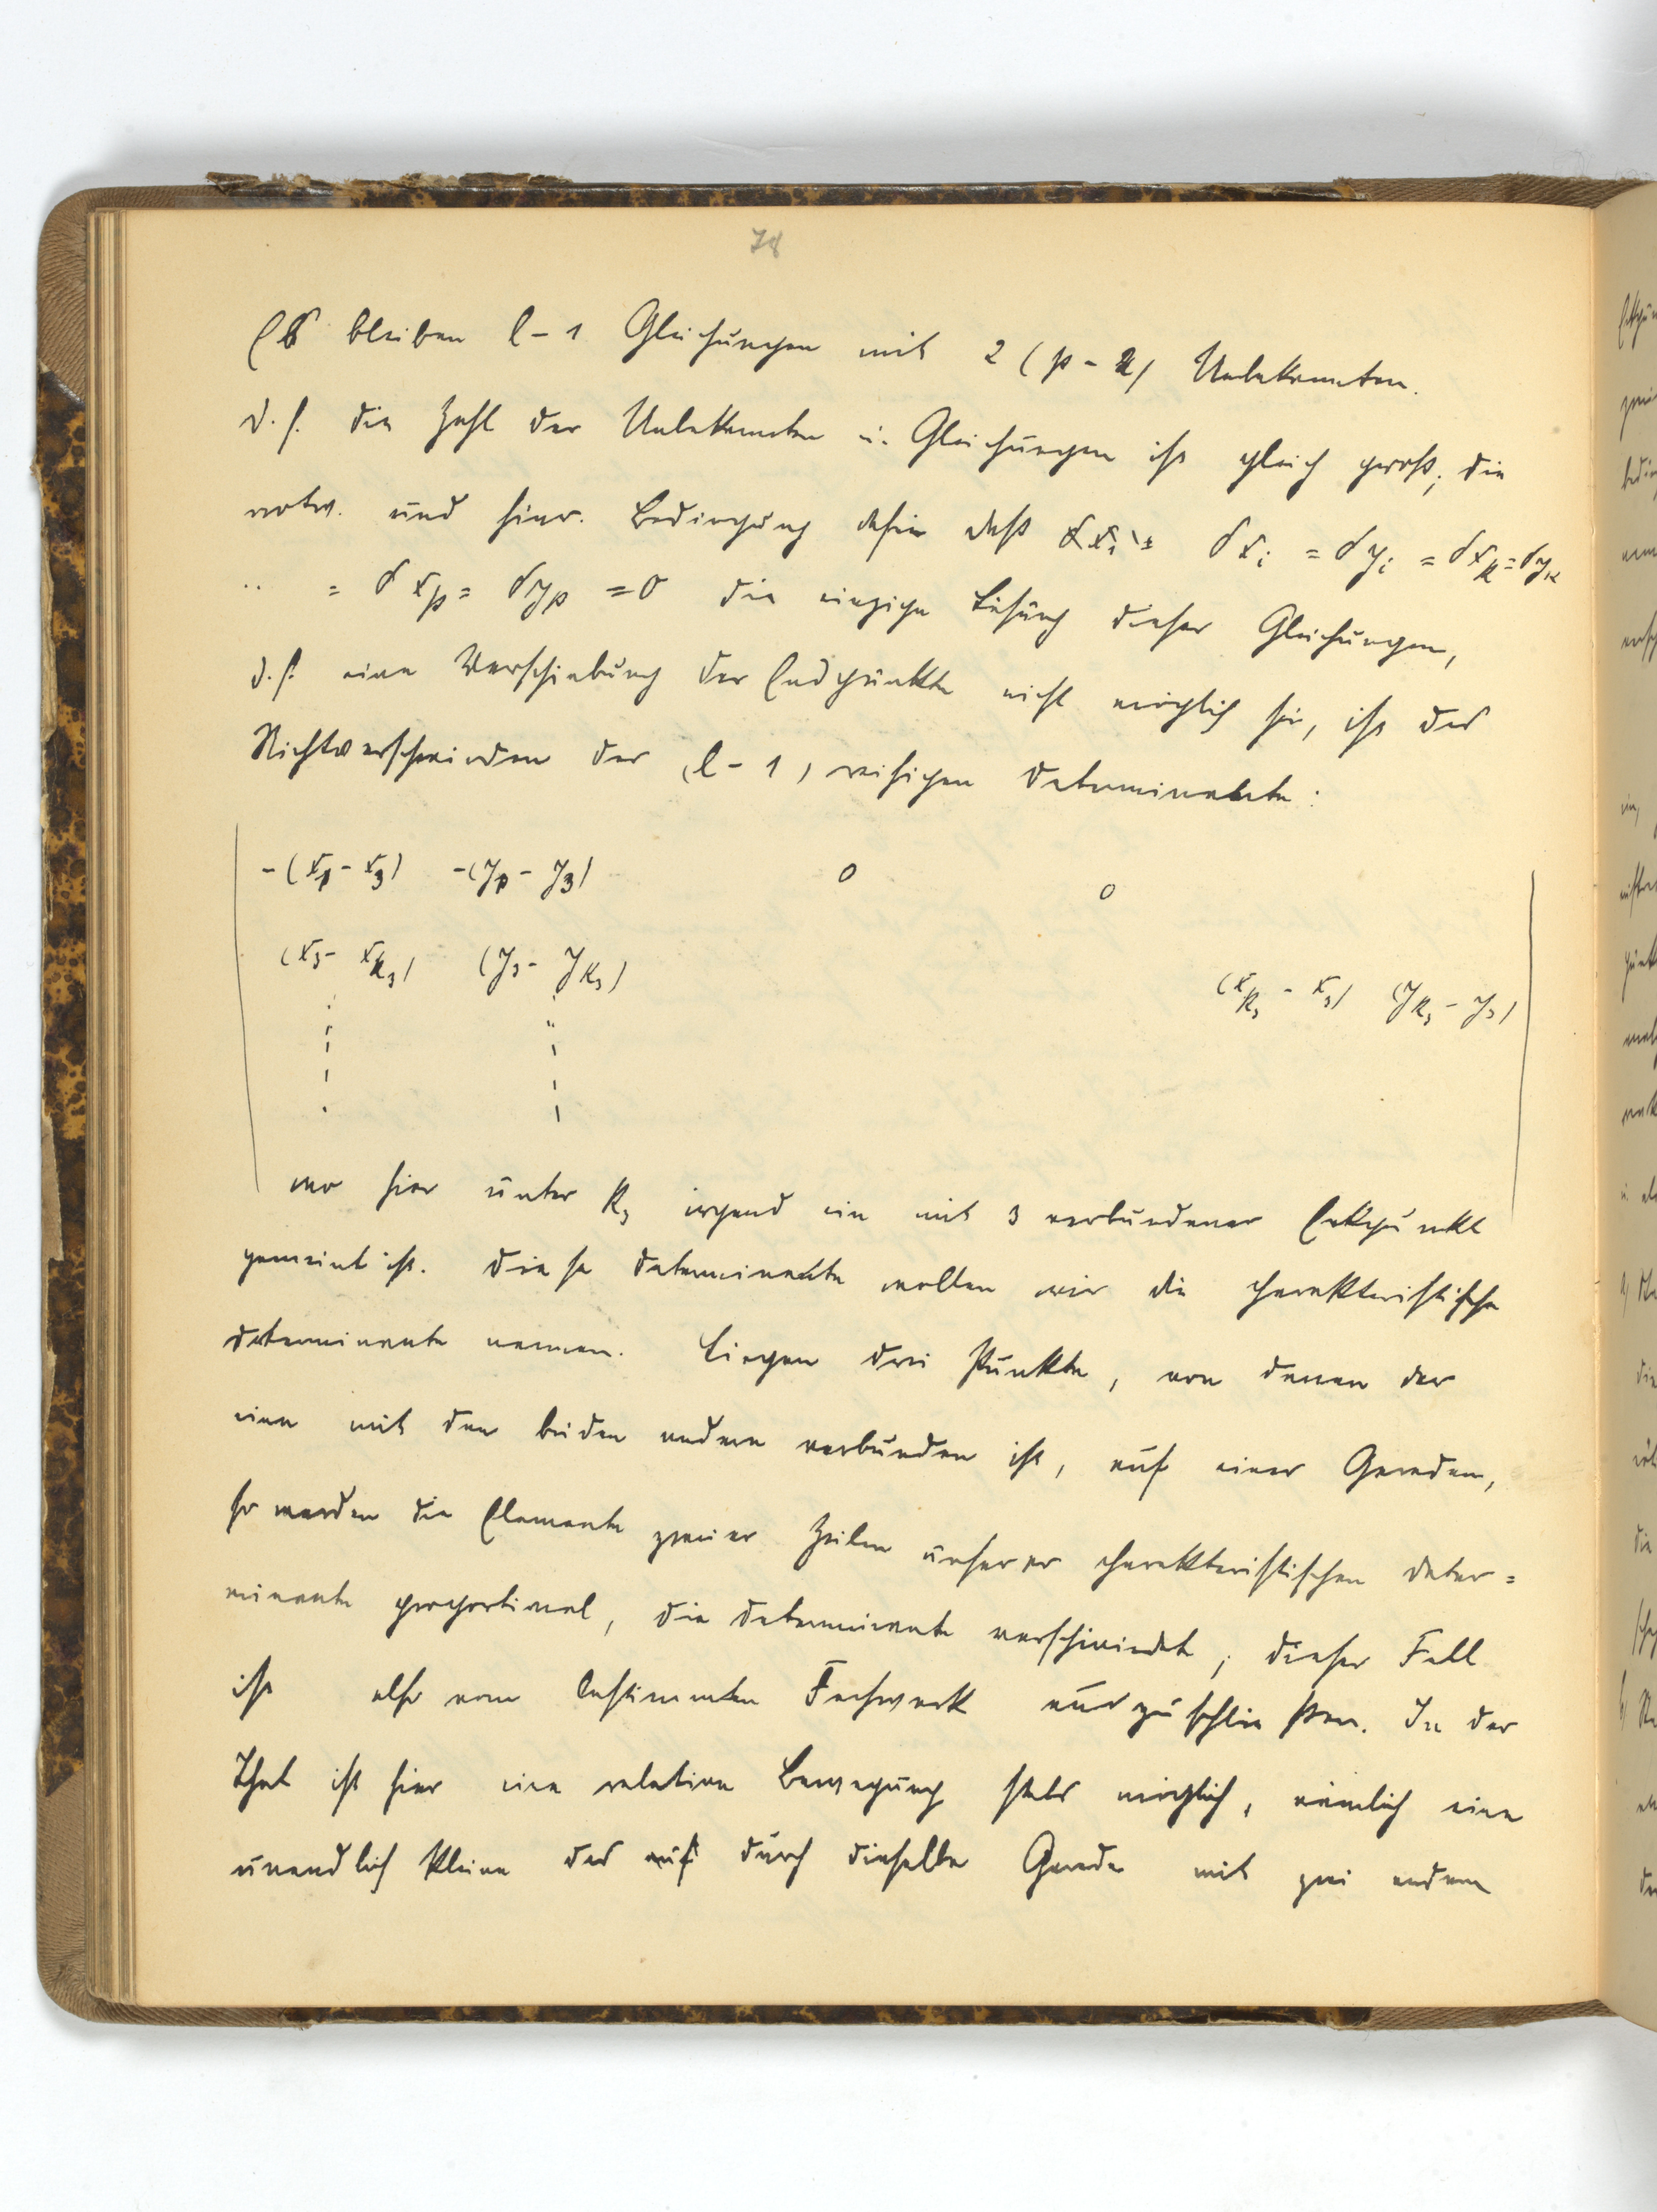 78
Es bleiben l-1 Gleichungen mit 2(p-2) Unbekannten.
d.h. die Zahl der Unbekannten u. Gleichungen ist gleich groß; die
notw. und hinr. Bedingung dafür daß δx_i = δy_i = δx_k = δy_k
.. = δx_p = δy_p = 0 die einzige Lösung dieser Gleichungen,
d.h. eine Verschiebung der Endpunkte nicht möglich sei, ist das
Nichtverschwinden der (l-1) reihigen Determinante:
-(x_p - x_3) -(y_p - y_3) 0 0
(x_3 - x_{k_3}) (y_3 - y_{k_3}) (x_{k_3} - x_3) (y_{k_3} - y_3)
wo hier unter k_3 irgend ein mit 3 verbundener Eckpunkt
gemeint ist. Diese Determinante wollen wir die charakteristische
Determinante nennen. Liegen drei Punkte, von denen der
eine mit den beiden andern verbunden ist, auf einer Geraden,
so werden die Elemente zweier Zeilen unserer charakteristischen Deter=
minante proportional, die Determinante verschwindet; dieser Fall
ist also vom bestimmten Fachwerk auszuschließen. In der
That ist hier eine relative Bewegung stets möglich, nämlich eine
unendlich kleine des durch dieselbe Gerade mit zwei andern